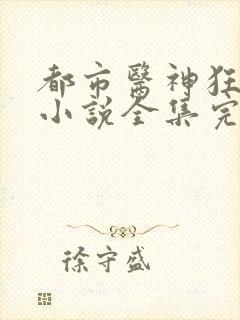 都市醫神狂
小說全集完
徐守盛